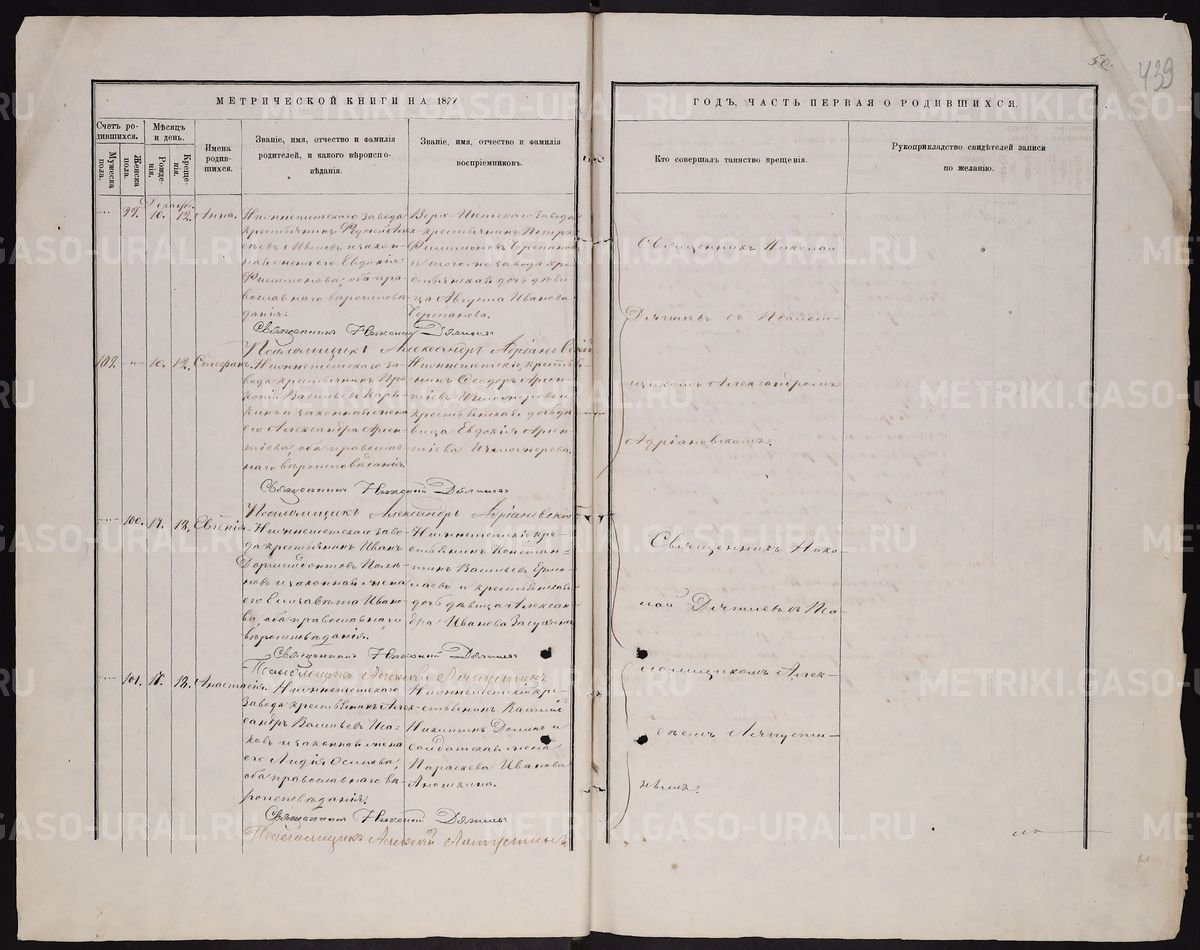 50.
439
МЕТРИЧЕСКОЙ КНИГИ НА 1877
ГОДЪ, ЧАСТЬ ПЕРВАЯ О РОДИВШИХСЯ.
Счетъ родившихся.
Мужеска пола.
Женска пола.
Мѣсяцъ и день.
Рожденія.
Крещенія.
Имена родившихся.
Званіе, имя, отчество и фамилія
родителей, и какого вѣроиспо-
вѣданія.
Званіе, имя, отчество и фамилія
воспріемниковъ.
Кто совершалъ таинство крещенія.
Рукоприкладство свидѣтелей записи
по желанію.
Декабрь
99. 10. 12. Анна.
Нижнеисетскаго завода
крестьянинъ
и закон-
ная жена его Евдокія
Филимонова; оба пра-
вославнаго вѣроисповѣ-
данія.
Верхъ-Исетскаго завода
крестьянинъ Петръ
Филимоновъ Черепановъ
и тогоже завода кре-
стьянская дочь дѣви-
ца Августа Иванова
Черепанова.
Священникъ Николай Дягилевъ
Псаломщикъ Александръ Адріановскій
Священникъ Николай
Дягилевъ съ Псалом-
щикомъ Александромъ
Адріановскимъ.
102. 10. 12. Стефанъ.
Нижнеисетскаго за-
вода крестьянинъ Про-
копій Васильевъ
и законная жена
его Александра Арсен-
тіева, оба православ-
наго вѣроисповѣданія.
Нижнеисетскіе крестья-
нинъ Ѳеодоръ Арсен-
тіевъ Изможеровъ и
крестьянская дочь дѣ-
вица Евдокія Арсен-
тіева Изможерова.
Священникъ Николай Дягилевъ
Псаломщикъ Александръ Адріановскій
100. 17. 18. Евгенія.
Нижнеисетскаго заво-
да крестьянинъ Иванъ
Дормидонтовъ
и законная жена
его Елизавета Ивано-
ва; оба православнаго
вѣроисповѣданія.
Нижнеисетскіе кре-
стьянинъ Констан-
тинъ Васильевъ Ермо-
лаевъ и крестьянская
дочь дѣвица Алексан-
дра Иванова
Священникъ Николай Дягилевъ
Псаломщикъ Алексѣй Лапустинъ
Священникъ Нико-
лай Дягилевъ съ Пса-
ломщикомъ Алек-
сѣемъ Лапусти-
нымъ.
101. 17. 18. Анастасія.
Нижнеисетскаго
завода крестьянинъ Алек-
сандръ Васильевъ Иса-
ковъ и законная жена
его Лидія Осипова;
оба православнаго вѣ-
роисповѣданія.
Нижнеисетскій кре-
стьянинъ Василій
Никитинъ и
солдатская жена
Параскева Иванова
Аношкина.
Священникъ Николай Дягилевъ
Псаломщикъ Алексѣй Лапустинъ
METRIKI.GASO-URAL.RU